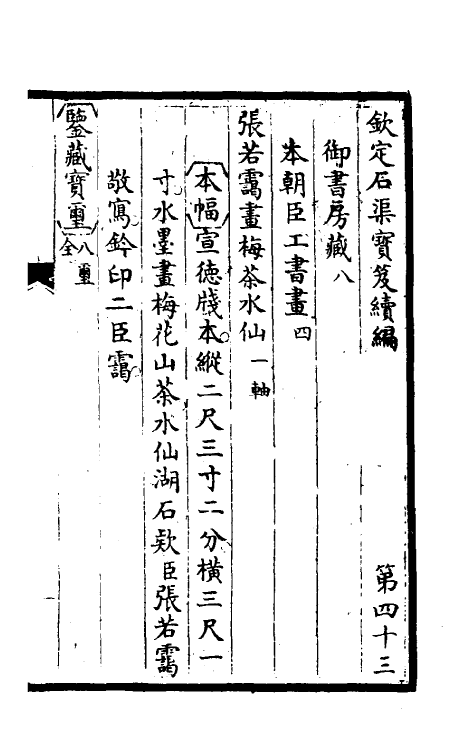 欽定石渠寶笈續編 第四十三
御書房藏八
本朝臣工書畫四
張若靄畫梅茶水仙一軸
本幅宣德牋本縱二尺三寸二分橫三尺一
寸水墨畫梅花山茶水仙湖石欵臣張若靄
敬寫鈐印二臣靄
鑒藏寶璽八璽全